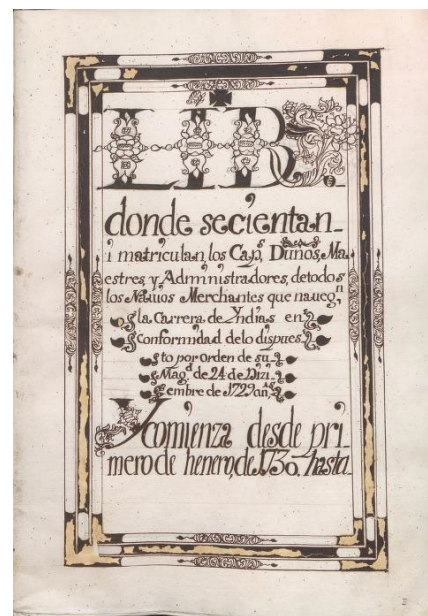 LIBRO
donde secientan_
i matriculan, los Caps, Dueños, Ma
estres, y Administradores, detodos
los Nauios Merchantes que nauegn
la Carrera de Yndias en
Conformidad delo dispues
to por orden de su
Magd de 24 de Dizi
embre de 1729 años
Y comienza desde pri
mero de henero, de 1730, hasta_